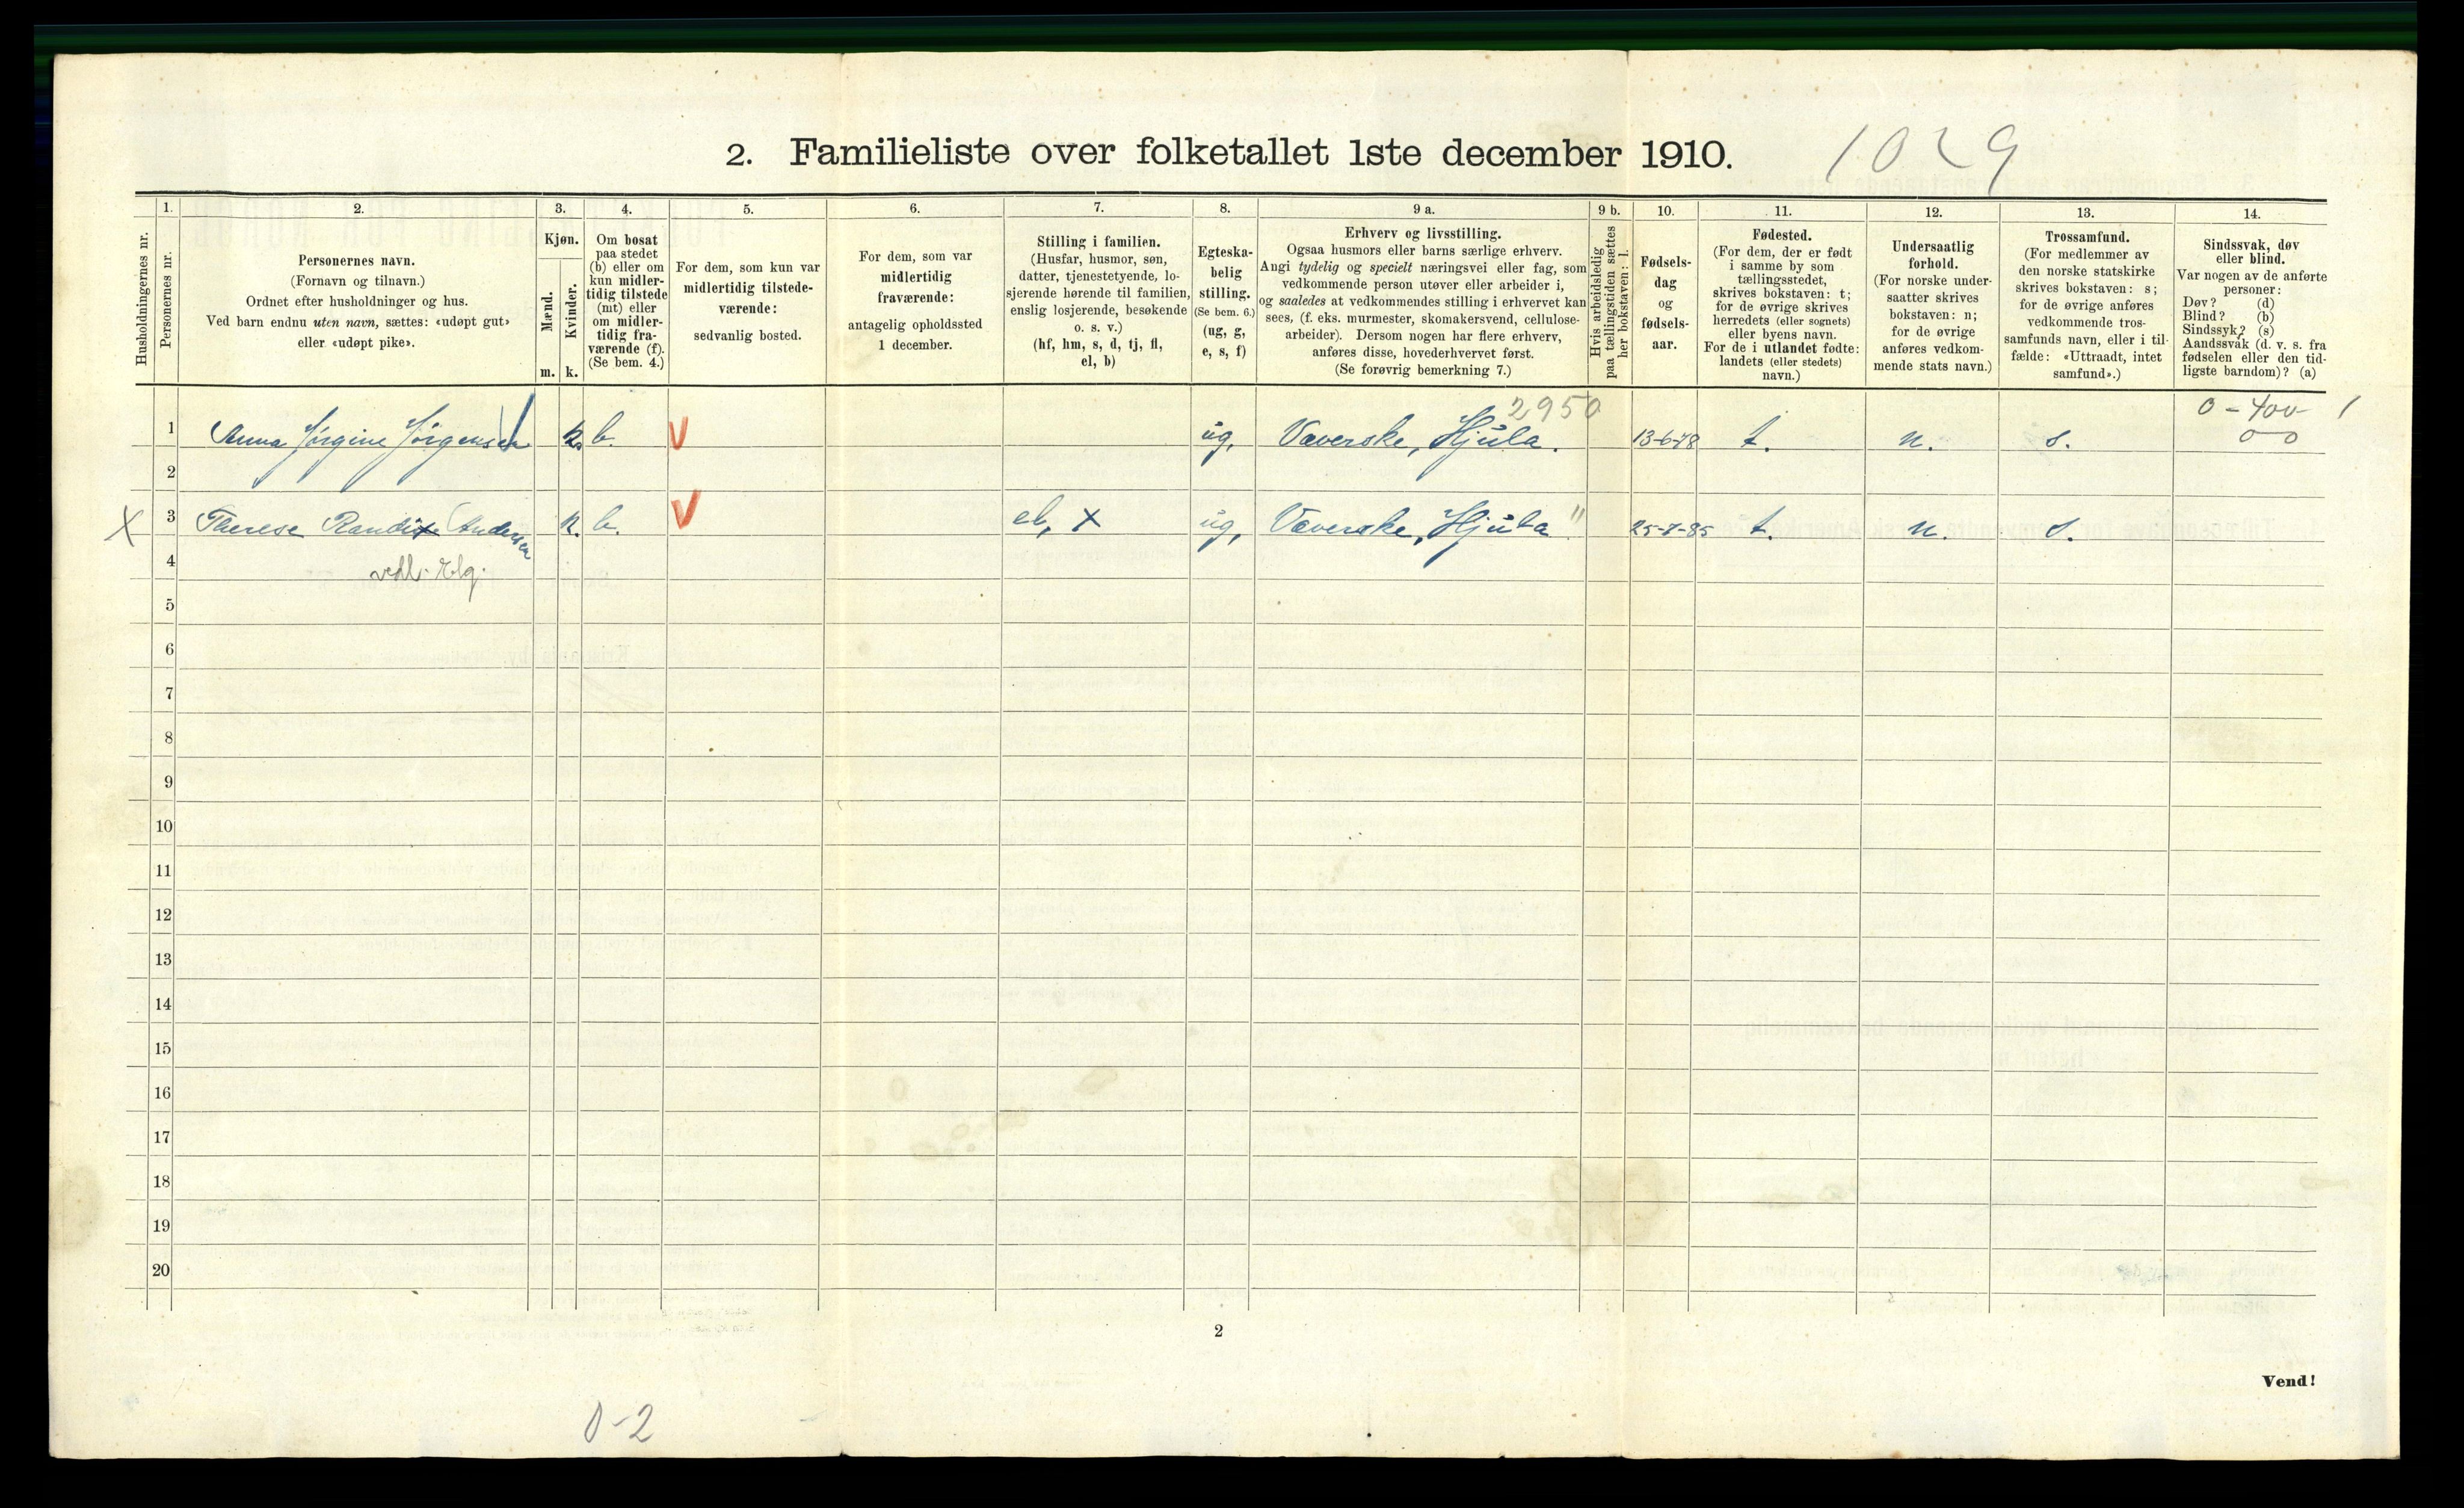 2. Familieliste over folketallet 1ste december 1910. 1029
Husholdningernes nr.
1.
Personernes nr.
2.
Personernes navn.
(Fornavn og tilnavn.)
Ordnet efter husholdninger og hus.
Ved barn endnu uten navn, sættes: «udøpt gut»
eller «udøpt pike».
3.
Kjøn.
Mænd.
Kvinder.
m. k.
4.
Om bosat
paa stedet
(b) eller om
kun midler-
tidig tilstede
(mt) eller
om midler-
tidig fra-
værende (f).
(Se bem. 4.)
5.
For dem, som kun var
midlertidig tilstede-
værende:
sedvanlig bosted.
6.
For dem, som var
midlertidig
fraværende:
antagelig opholdssted
1 december.
7.
Stilling i familien.
(Husfar, husmor, søn,
datter, tjenestetyende, lo-
sjerende hørende til familien,
enslig losjerende, besøkende
o. s. v.)
(hf, hm, s, d, tj, fl,
el, b)
8.
Egteska-
belig
stilling.
(Se bem. 6.)
(ug, g,
e, s, f)
9 a.
Erhverv og livsstilling.
Ogsaa husmors eller barns særlige erhverv.
Angi tydelig og specielt næringsvei eller fag, som
vedkommende person utøver eller arbeider i,
og saaledes at vedkommendes stilling i erhvervet kan
sees, (f. eks. murmester, skomakersvend, cellulose-
arbeider). Dersom nogen har flere erhverv,
anføres disse, hovederhvervet først.
(Se forøvrig bemerkning 7.)
9 b.
Hvis arbeidsledig
paa tællingstiden sættes
her bokstaven: l.
10.
Fødsels-
dag
og
fødsels-
aar.
11.
Fødested.
(For dem, der er født
i samme by som
tællingsstedet,
skrives bokstaven: t;
for de øvrige skrives
herredets (eller sognets)
eller byens navn.
For de i utlandet fødte:
landets (eller stedets)
navn.)
12.
Undersaatlig
forhold.
(For norske under-
saatter skrives
bokstaven: n;
for de øvrige
anføres vedkom-
mende stats navn.)
13.
Trossamfund.
(For medlemmer av
den norske statskirke
skrives bokstaven: s;
for de øvrige anføres
vedkommende tros-
samfunds navn, eller i til-
fælde: «Uttraadt, intet
samfund».)
14.
Sindssvak, døv
eller blind.
Var nogen av de anførte
personer:
Døv? (d)
Blind? (b)
Sindssyk? (s)
Aandssvak (d. v. s. fra
fødselen eller den tid-
ligste barndom)? (a)
2950 0-400- 1
1 Anna Jørgine Jørgensen k. b. V ug, Væverske, Hjula. 13-6-78 t. n. s. 0-0
2
X 3 Therese Randi Andersen k. b. V el, X ug, Væverske, Hjula " 25-7-85 t. n. s.
4
5
6
7
8
9
10
11
12
13
14
15
16
17
18
19
20
2
Vend!
0-2